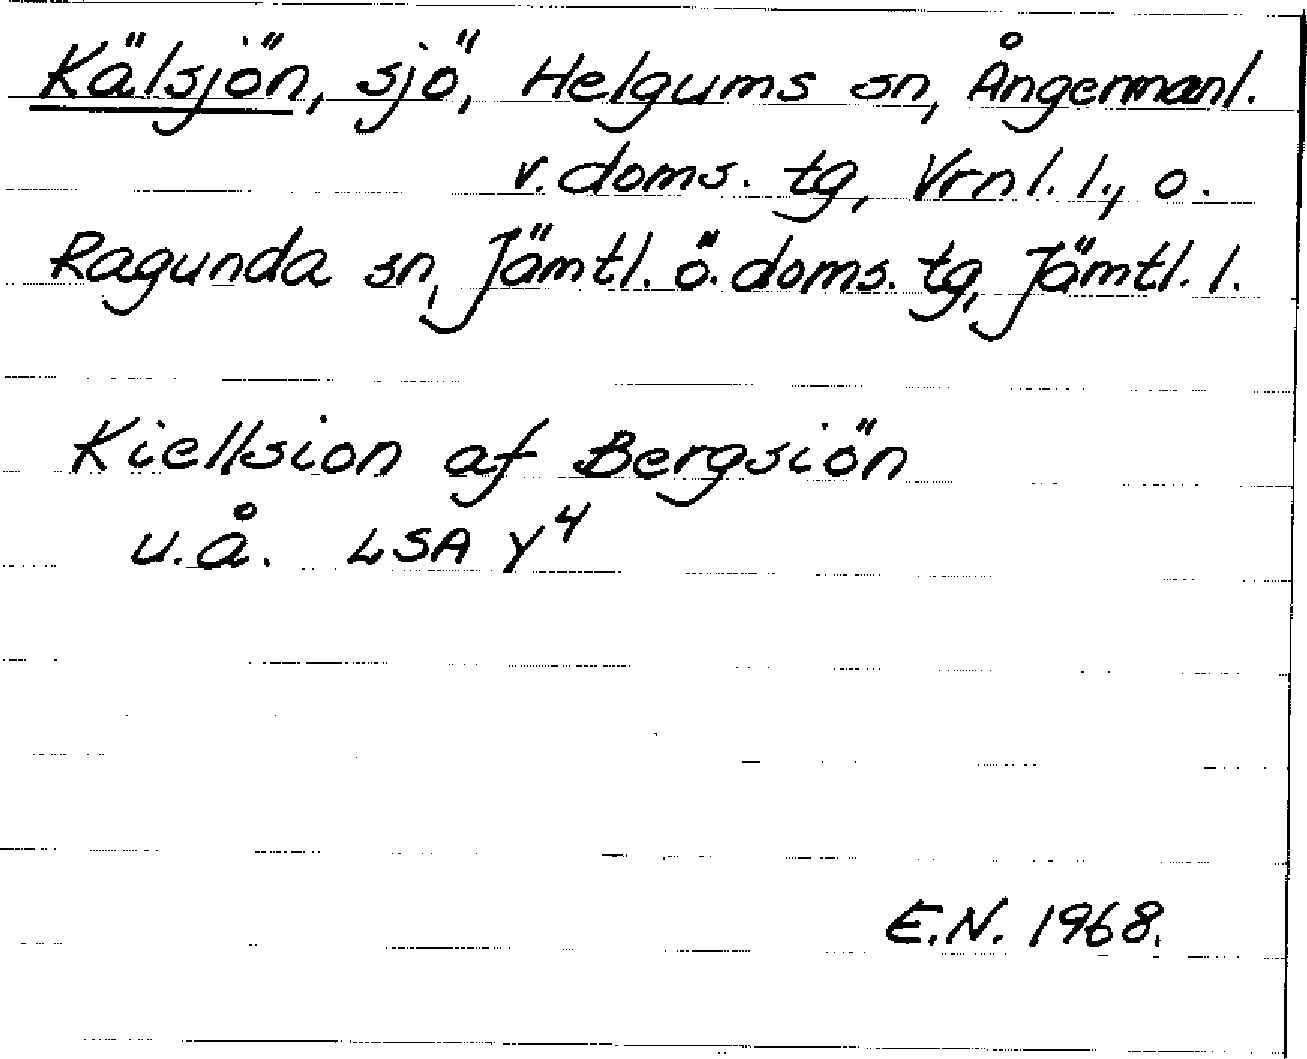 Kälsjön, sjö, Helgums sn, Ångermanl.
v. doms. tg, Vrnl. l., o.
Ragunda sn, Jämtl. ö. doms. tg, Jämtl. l.
Kiellsion af Bergsiön
u.å. LSA Y⁴
E.N. 1968.